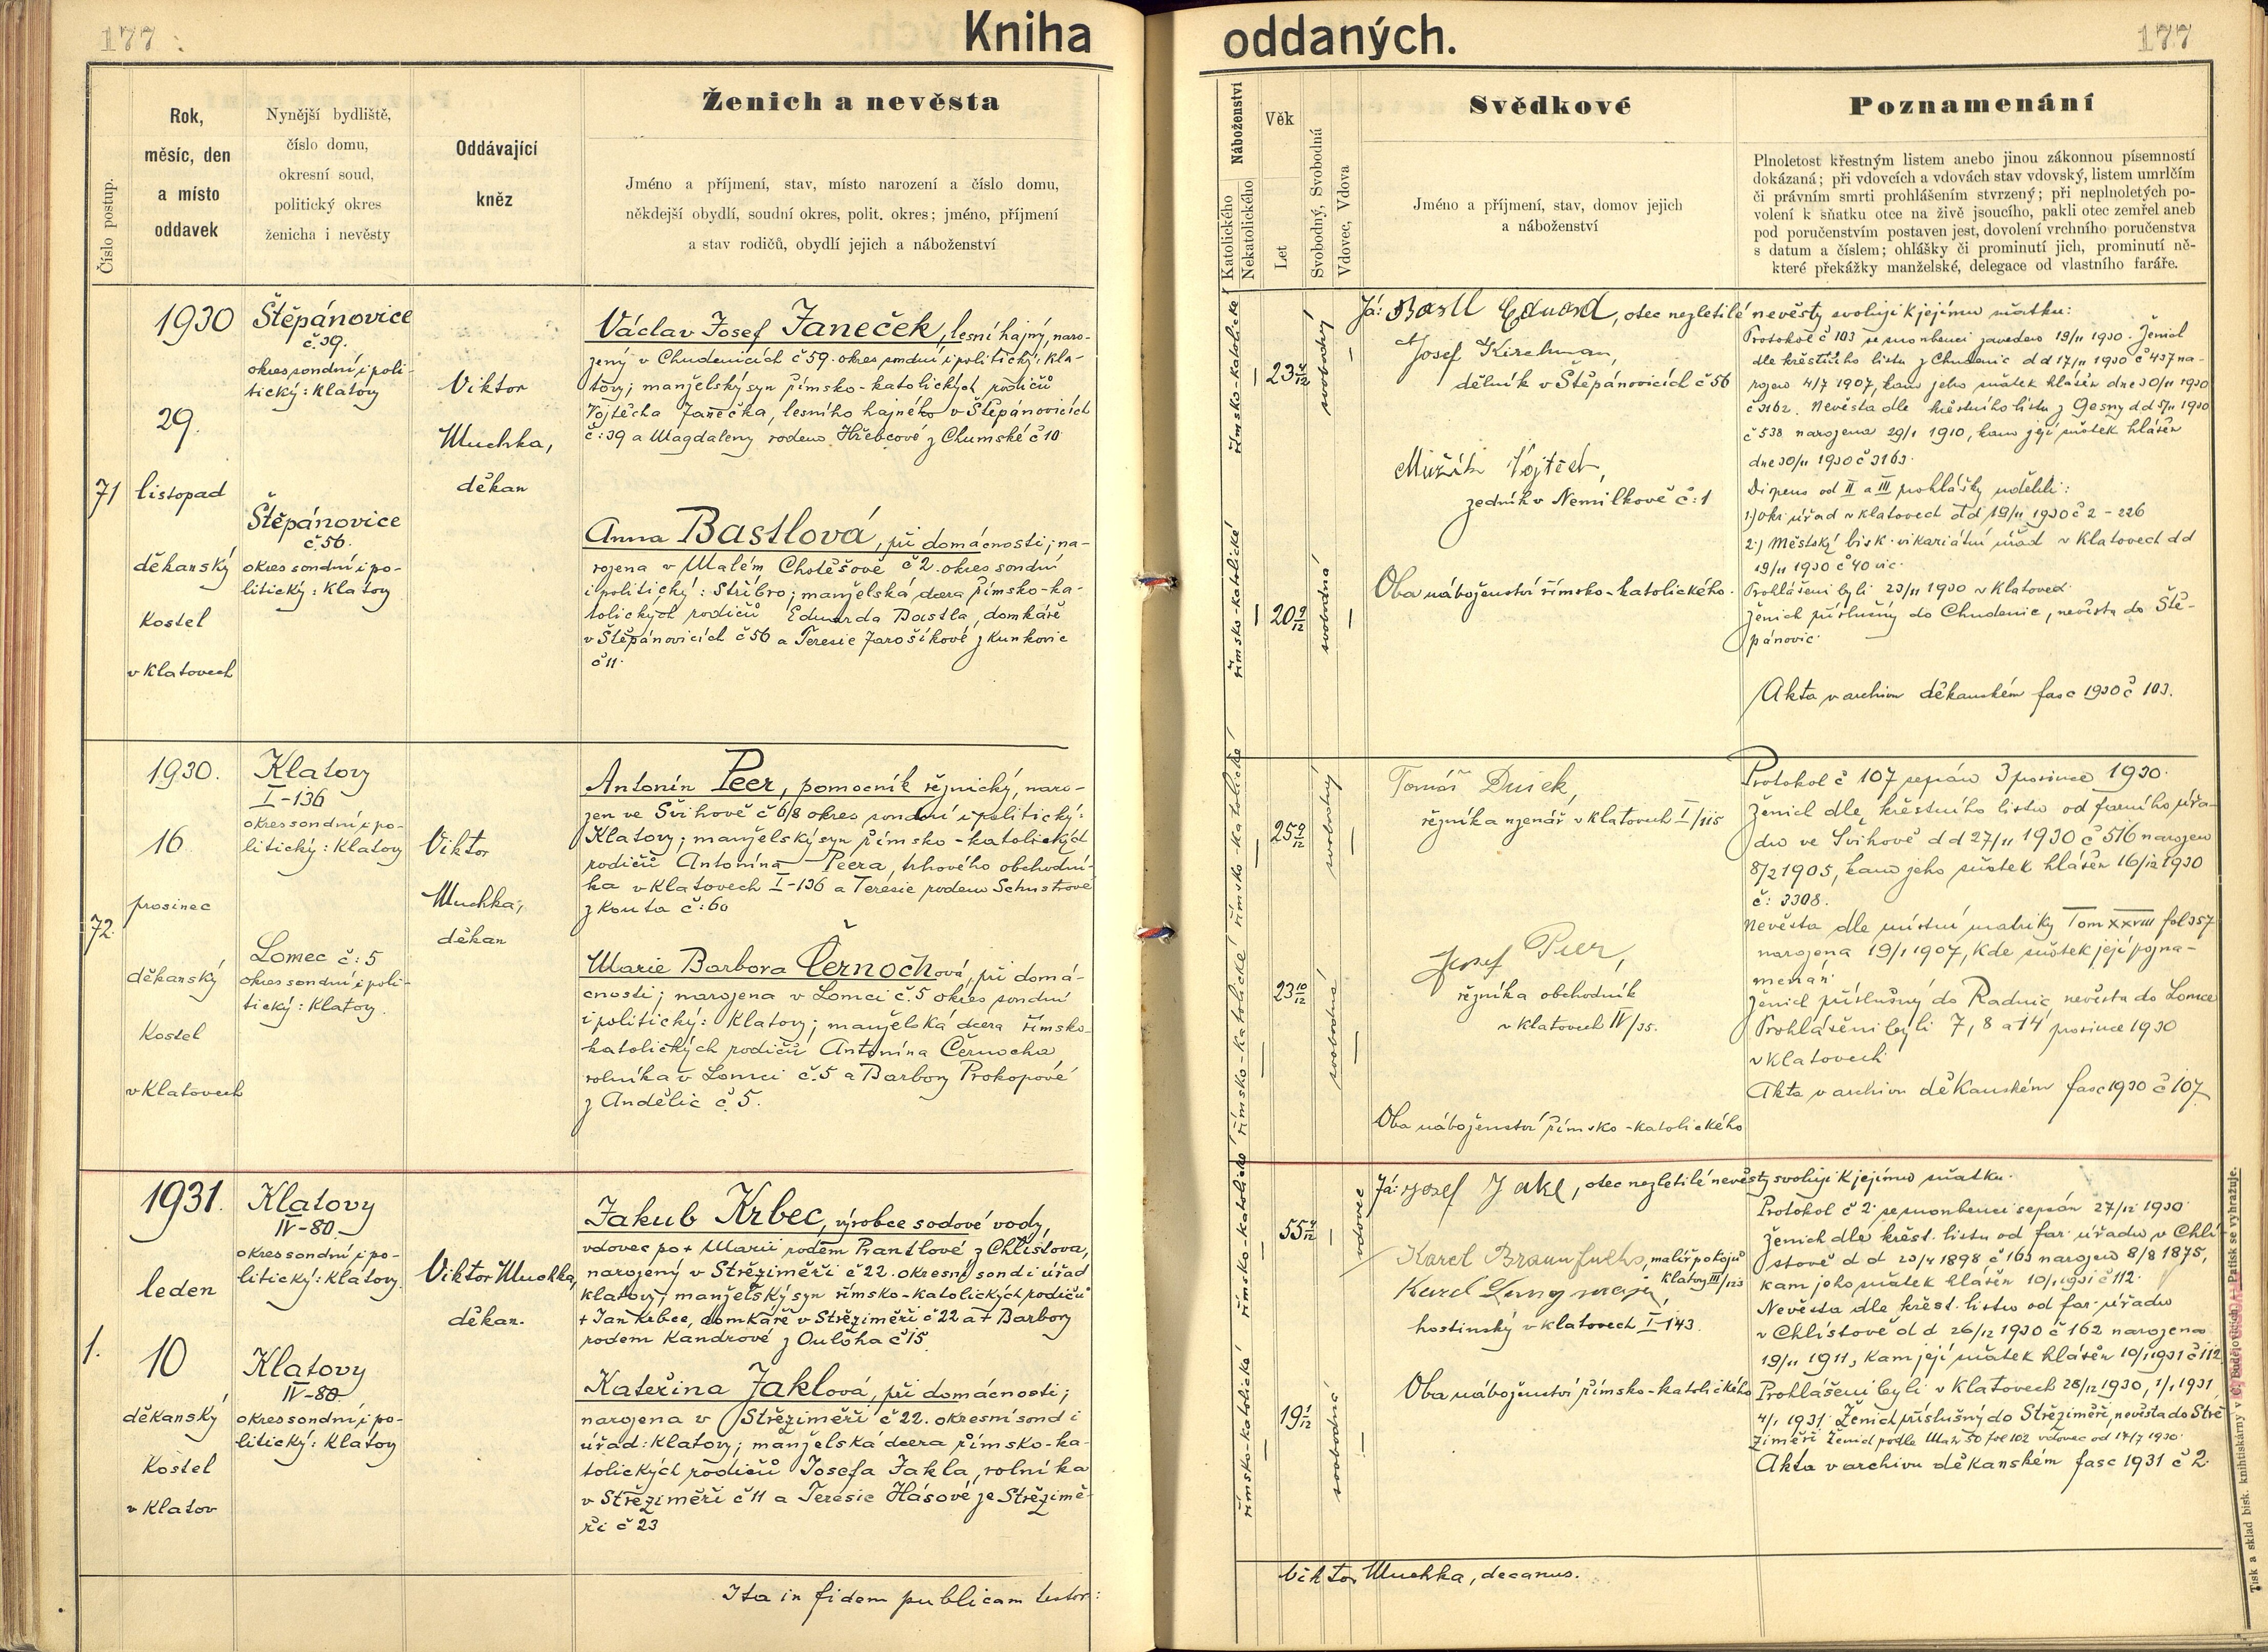 177
Kniha
Číslo postup.
Rok,
měsíc, den
a místo
oddavek
Nynější bydliště,
číslo domu,
okresní soud,
politický okres
ženicha i nevěsty
Oddávající
kněz
Ženich a nevěsta
Jméno a příjmení, stav, místo narození a číslo domu,
někdejší obydlí, soudní okres, polit. okres; jméno, příjmení
a stav rodičů, obydlí jejich a náboženství
71
1930
29.
listopad
děkanský
kostel
v Klatovech
Štěpánovice
č. 39.
okres soudní i poli-
tický: Klatovy
Štěpánovice
č. 56.
okres soudní i po-
litický: Klatovy
Viktor
Muchka,
děkan
Václav Josef Janeček, lesní hajný, naro-
zený v Chudenicích č 59. okres soudní i politický: Kla-
tovy; manželský syn římsko-katolických rodičů
Vojtěcha Janečka, lesního hajného v Štěpánovicích
č: 39 a Magdaleny rodem Hřebcové z Chumské č 10
Anna Bastlová, při domácnosti; na-
rozena v Malém Chotěšově č 2. okres soudní
i politický: Stříbro; manželská dcera římsko-ka-
tolických rodičů Eduarda Bastla, domkáře
v Štěpánovicích č 56 a Teresie Jarošíkové z Kunkovic
č 11.
72.
1930.
16.
prosinec
děkanský
kostel
v Klatovech
Klatovy
I-136
okres soudní i po-
litický: Klatovy
Lomec č: 5
okres soudní i poli-
tický: Klatovy.
Viktor
Muchka,
děkan
Antonín Peer, pomocník řeznický, naro-
zen ve Švihově č 68 okres soudní i politický:
Klatovy; manželský syn římsko-katolických
rodičů Antonína Peera, trhového obchodní-
ka v Klatovech I-136 a Teresie rodem Schustrové
z Kouta č: 60
Marie Barbora Černochová, při domá-
cnosti; narozena v Lomci č. 5 okres soudní
i politický: Klatovy; manželská dcera římsko-
katolických rodičů Antonína Černocha
rolníka v Lomci č. 5 a Barbory Prokopové
z Andělic č. 5.
1.
1931.
leden
10
děkanský
kostel
v Klatov
Klatovy
IV-80.
okres soudní i po-
litický: Klatovy.
Klatovy
IV-80.
okres soudní i po-
litický: Klatovy
Viktor Muchka,
děkan.
Jakub Krbec, výrobce sodové vody,
vdovec po + Marii rodem Prantlové z Chlistova,
narozený v Střeziměři č 22. okresní soud i úřad
Klatovy; manželský syn římsko-katolických rodičů
+ Jan Krbec, domkáře v Střeziměři č 22 a + Barbory
rodem Kandrové z Ouloha č 15.
Kateřina Jaklová, při domácnosti;
narozena v Střeziměři č 22. okresní soud i
úřad: Klatovy; manželská dcera římsko-ka-
tolických rodičů Josefa Jakla, rolníka
v Střeziměři č 11 a Teresie Hásové ze Střezimě-
ři č 23
Ita in fidem publicam testor:
oddaných.
177
Náboženství
Katolického
Nekatolického
Věk
Let
Svobodný, Svobodná
Vdovec, Vdova
Svědkové
Jméno a příjmení, stav, domov jejich
a náboženství
Poznamenání
Plnoletost křestným listem anebo jinou zákonnou písemností
dokázaná; při vdovcích a vdovách stav vdovský, listem umrlčím
či právním smrti prohlášením stvrzený; při neplnoletých po-
volení k sňatku otce na živě jsoucího, pakli otec zemřel aneb
pod poručenstvím postaven jest, dovolení vrchního poručenstva
s datum a číslem; ohlášky či prominutí jich, prominutí ně-
které překážky manželské, delegace od vlastního faráře.
římsko-katolické
23 4/12
svobodný
římsko-katolické
20 9/12
svobodná
Já: Bastl Eduard, otec nezletilé nevěsty svoluji k jejímu sňatku:
Josef Kirchman,
dělník v Štěpánovicích č 56
Mužík Vojtěch,
zedník v Nemilkově č: 1
Oba náboženství římsko-katolického.
Protokol č 103 se snoubenci zaveden 19/11 1930. Ženich
dle křestního listu z Chudenic dd 17/11 1930 č 437 na-
rozen 4/7 1907, kam jeho sňatek hlášen dne 30/11 1930
č 3162. Nevěsta dle křestního listu z Gesny dd 5/11 1930
č 538 narozena 29/1 1910, kam její sňatek hlášen
dne 30/11 1930 č 3163.
Dispens od II a III prohlášky udělili:
1) Okr. úřad v Klatovech dd 19/11 1930 č 2-226
2.) Městský bisk. vikariátní úřad v Klatovech dd
19/11 1930 č 40 vic.
Prohlášeni byli 23/11 1930 v Klatovech.
Ženich příslušný do Chudenic, nevěsta do Ště-
pánovic.
Akta v archivu děkanském fasc 1930 č 103.
římsko-katolické
25 9/12
svobodný
římsko-katolické
23 10/12
svobodná
Tomáš Dusek,
řezník a uzenář v Klatovech I/115
Josef Peer,
řezník a obchodník
v Klatovech IV/35.
Oba náboženství římsko-katolického
Protokol č 107 sepsán 3 prosince 1930.
Ženich dle křestního listu od farního úřa-
du ve Švihově dd 27/11 1930 č 516 narozen
8/2 1905, kam jeho sňatek hlášen 16/12 1930
č: 3308.
Nevěsta dle místní matriky Tom XXVIII fol 357
narozena 19/1 1907, kde sňatek její pozna-
menán.
Ženich příslušný do Radnic, nevěsta do Lomce
Prohlášeni byli 7, 8 a 14 prosince 1930
v Klatovech.
Akta v archivu děkanském fasc 1930 č 107
římsko-katolické
55 4/12
vdovec
římsko-katolické
19 1/12
svobodná
Já: Josef Jakl, otec nezletilé nevěsty svoluji k jejímu sňatku.
Karel Braunfuchs, malíř pokojů
Klatovy III/123
Karel
hostinský v Klatovech I-143.
Oba náboženství římsko-katolického
Protokol č 2. se snoubenci sepsán 27/12 1930.
Ženich dle křest. listu od far. úřadu v Chlí-
stově dd 23/4 1898, č 163 narozen 8/8 1875,
kam jeho sňatek hlášen 10/1 1931 č 112.
Nevěsta dle křest. listu od far. úřadu
v Chlístově dd 26/12 1930 č 162 narozena
19/11 1911, kam její sňatek hlášen 10/1 1931 č 112
Prohlášeni byli v Klatovech 28/12 1930, 1/1 1931
4/1 1931. Ženich příslušný do Střeziměře, nevěsta do Stře
ziměři Ženich podle Mat 50 fol 102 vdovec od 17/7 1930.
Akta v archivu děkanském fasc 1931 č 2.
Viktor Muchka, decanus.
Tisk a sklad bisk. knihtiskárny v Č. Budějovicích. Patisk se vyhražuje.